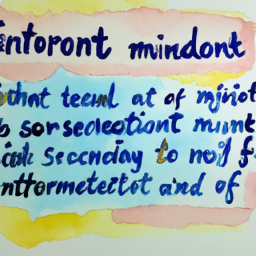 intoront mindont
hat tecul at of mjniot
sorsedectiont munt
Seccnday to nof f
nttormetectot and of